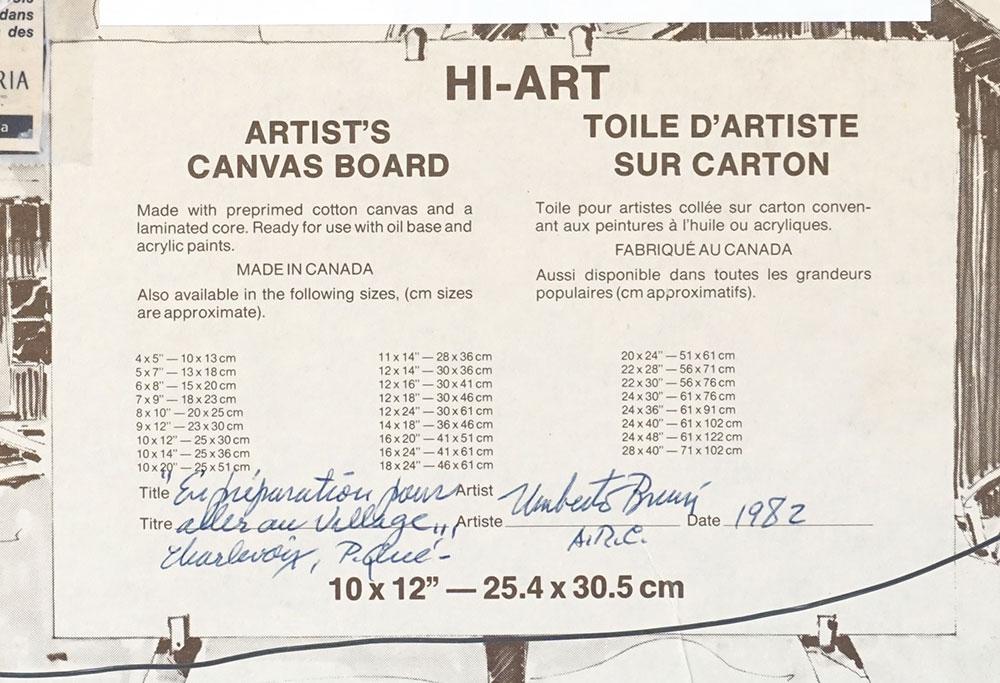 dans
des
RIA
a
HI-ART
ARTIST'S
CANVAS BOARD
Made with preprimed cotton canvas and a
laminated core. Ready for use with oil base and
acrylic paints.
MADE IN CANADA
Also available in the following sizes, (cm sizes
are approximate).
TOILE D'ARTISTE
SUR CARTON
Toile pour artistes collée sur carton conven-
ant aux peintures à l'huile ou acryliques.
FABRIQUÉ AU CANADA
Aussi disponible dans toutes les grandeurs
populaires (cm approximatifs).
4 x 5" — 10 x 13 cm
5 x 7" — 13 x 18 cm
6 x 8" — 15 x 20 cm
7 x 9" — 18 x 23 cm
8 x 10" — 20 x 25 cm
9 x 12" — 23 x 30 cm
10 x 12" — 25 x 30 cm
10 x 14" — 25 x 36 cm
10 x 20" — 25 x 51 cm
11 x 14" — 28 x 36 cm
12 x 14" — 30 x 36 cm
12 x 16" — 30 x 41 cm
12 x 18" — 30 x 46 cm
12 x 24" — 30 x 61 cm
14 x 18" — 36 x 46 cm
16 x 20" — 41 x 51 cm
16 x 24" — 41 x 61 cm
18 x 24" — 46 x 61 cm
20 x 24" — 51 x 61 cm
22 x 28" — 56 x 71 cm
22 x 30" — 56 x 76 cm
24 x 30" — 61 x 76 cm
24 x 36" — 61 x 91 cm
24 x 40" — 61 x 102 cm
24 x 48" — 61 x 122 cm
28 x 40" — 71 x 102 cm
Title "En préparation pour
Titre aller au village,,
Charlevoix, P. Qué-
Artist
Artiste Umberto Bruni
A.R.C.
Date 1982
10 x 12" — 25.4 x 30.5 cm